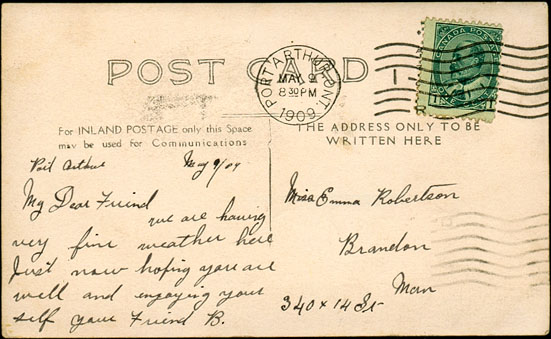 POST CARD
PORT ARTHUR, ONT.
MAY 9
8 30 PM
1909
CANADA POSTAGE
For INLAND POSTAGE only this Space
may be used for Communications
THE ADDRESS ONLY TO BE
WRITTEN HERE
Port Arthur May 9/09
My Dear Friend
we are having
very fine weather here
Just now hoping you are
well and enjoying your
self your Friend B.
Miss Emma Robertson
Brandon
Man
340 x 14 St